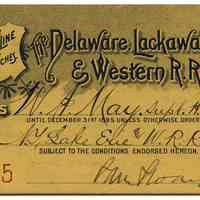 LINE
The Delaware, Lackawa
& Western R.R.
S W. H. May, Supt.
UNTIL DECEMBER 31ST 1895 UNLESS OTHERWISE ORDER
N.Y. Lake Erie & W. R.R.
SUBJECT TO THE CONDITIONS ENDORSED HEREON.
5